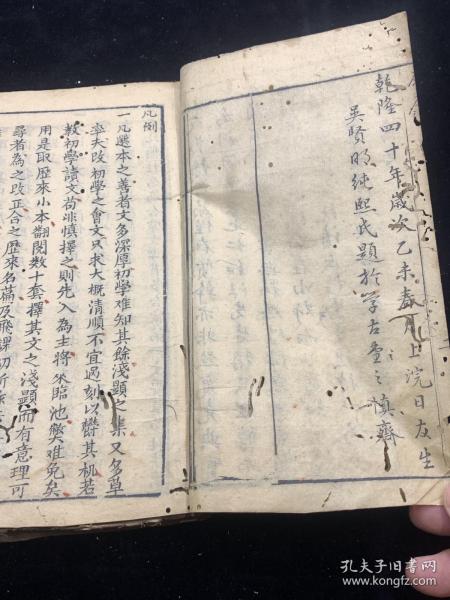 乾隆四十年歲次乙未春月上浣日友生
吳賢明純熙氏題於學古堂之慎齋
凡例
一凡選本之善者文多深厚初學难知其餘淺顯之集又多草
率夫改初學之會文只求大概清順不宜過刻以欝其机若
教初學讀文苟非慎擇之則先入為主將來臨池獘难免矣
用是取歷來小本翻閱数十套擇其文之淺顯而有意理可
尋者為之改正合之歷來名篇及
孔夫子旧书网
www.kongfz.com